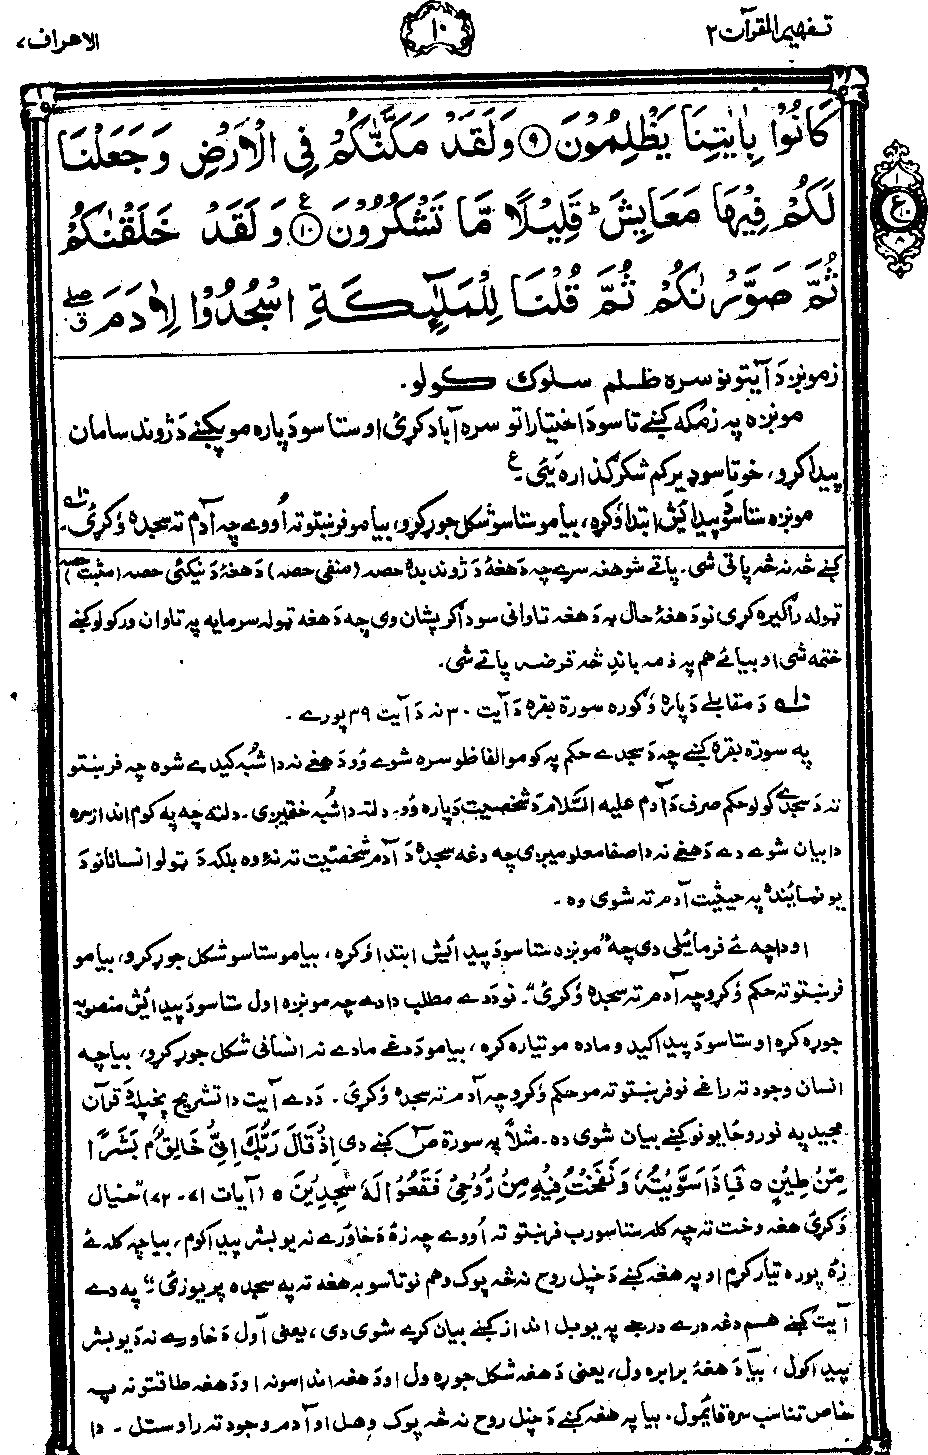 تفهيم القرآن ٢
١٠
الاعراف ٧
كَانُوْا بِاٰيٰتِنَا يَظْلِمُوْنَ ۝٩ وَلَقَدْ مَكَّنّٰكُمْ فِي الْاَرْضِ وَجَعَلْنَا
لَكُمْ فِيْهَا مَعَايِشَ ؕ قَلِيْلًا مَّا تَشْكُرُوْنَ ۝١٠ وَلَقَدْ خَلَقْنٰكُمْ
ثُمَّ صَوَّرْنٰكُمْ ثُمَّ قُلْنَا لِلْمَلٰٓئِكَةِ اسْجُدُوْا لِاٰدَمَ
زمونږه دَ آيتونو سره ظلم سلوك كولو.
مونږه په زمكه كښے تاسو دَ اختياراتو سره آباد كړئ او ستاسو دَپاره مو پكښے دَ ژوند سامان
پيدا كړو، خو تاسو ډير كم شكر گذاره يئ.
مونږه ستاسو پيدائش ابتدا وُكړه، بيا مو ستاسو شكل جوړ كړو، بيا مو فرښتو ته اُووے چه آدم ته سجده وُكړئ.
كښے څه نه څه پاتے شى. پاتے شو هغه سړے چه دَ هغۀ دَ ژوند بده حصه (منفى حصه) دَ هغۀ دَ نيكئ حصه (مثبت حصه)
ټوله راگيره كړى نو دَ هغۀ حال به دَ هغه تاوانى سوداگر پشان وى چه دَ هغه ټوله سرمايه په تاوان وركولو كښے
ختمه شى او بيائے هم په ذمه باندِ څه قرضه پاتے شى.
١٠ دَ مقابلے دَپاره وُگوره سورة بقره دَ آيت ٣٠ نه دَ آيت ٣٩ پورے.
په سورة بقره كښے چه دَ سجدے حكم په كومو الفاظو سره شوے وُو دَ هغے نه دا شُبه كيدے شوه چه فرښتو
ته دَ سجدے كولو حكم صرف دَ آدم عليه السلام دَ شخصيت دَپاره وُو. دلته دا شُبه ختميږى. دلته چه په كوم انداز سره
دا بيان شوے دے دَ هغے نه دا صفا معلوميږى چه دغه سجده دَ آدم شخصيت ته نۀ وه بلكه دَ ټولو انسانانو دَ
يو نمائنده په حيثيت آدم ته شوى وه.
او دا چه ئے فرمائيلى دى چه "مونږه ستاسو دَ پيدائش ابتدا وُكړه، بيا مو ستاسو شكل جوړ كړو، بيا مو
فرښتو ته حكم وُكړو چه آدم ته سجده وُكړئ". نو دَ دے مطلب دا دے چه مونږه اول ستاسو دَ پيدائش منصوبه
جوړه كړه او ستاسو دَ پيدا كيدو ماده مو تياره كړه، بيا مو دَ هغے مادے نه انسانى شكل جوړ كړو، بيا چه
انسان وجود ته راغے نو فرښتو ته مو حكم وُكړو چه آدم ته سجده وُكړئ. دَ دے آيت دا تشريح پخپله قرآن
مجيد په نورو ځايونو كښے بيان شوى ده. مثلاً په سورة صٓ كښے دى اِذْ قَالَ رَبُّكَ اِنِّىْ خَالِقٌ بَشَرًا
مِّنْ طِيْنٍ ٥ فَاِذَا سَوَّيْتُهٗ وَنَفَخْتُ فِيْهِ مِنْ رُّوْحِىْ فَقَعُوْا لَهٗ سٰجِدِيْنَ ٥ (آيات ٧١-٧٢) "خيال
وُكړئ هغه وخت ته چه كله ستاسو رب فرښتو ته اُووے چه زۀ دَ خاورے نه يو بشر پيدا كوم، بيا چه كله ئے
زۀ پوره تيار كړم او په هغه كښے دَ خپل روح نه څه پوك وهم نو تاسو به هغه ته په سجده پريوزئ". په دے
آيت كښے هم دغه درے درجے په يو بل انداز كښے بيان كړے شوى دى، يعنى اول دَ خاورے نه دَ يو بشر
پيدا كول، بيا دَ هغۀ برابره ول، يعنى دَ هغه شكل جوړه ول او دَ هغه اندامونه او دَ هغه طاقتونه په
خاص تناسب سره قايمول. بيا په هغه كښے دَ خپل روح نه څه پوك وهل او آدم وجود ته راوستل. دا